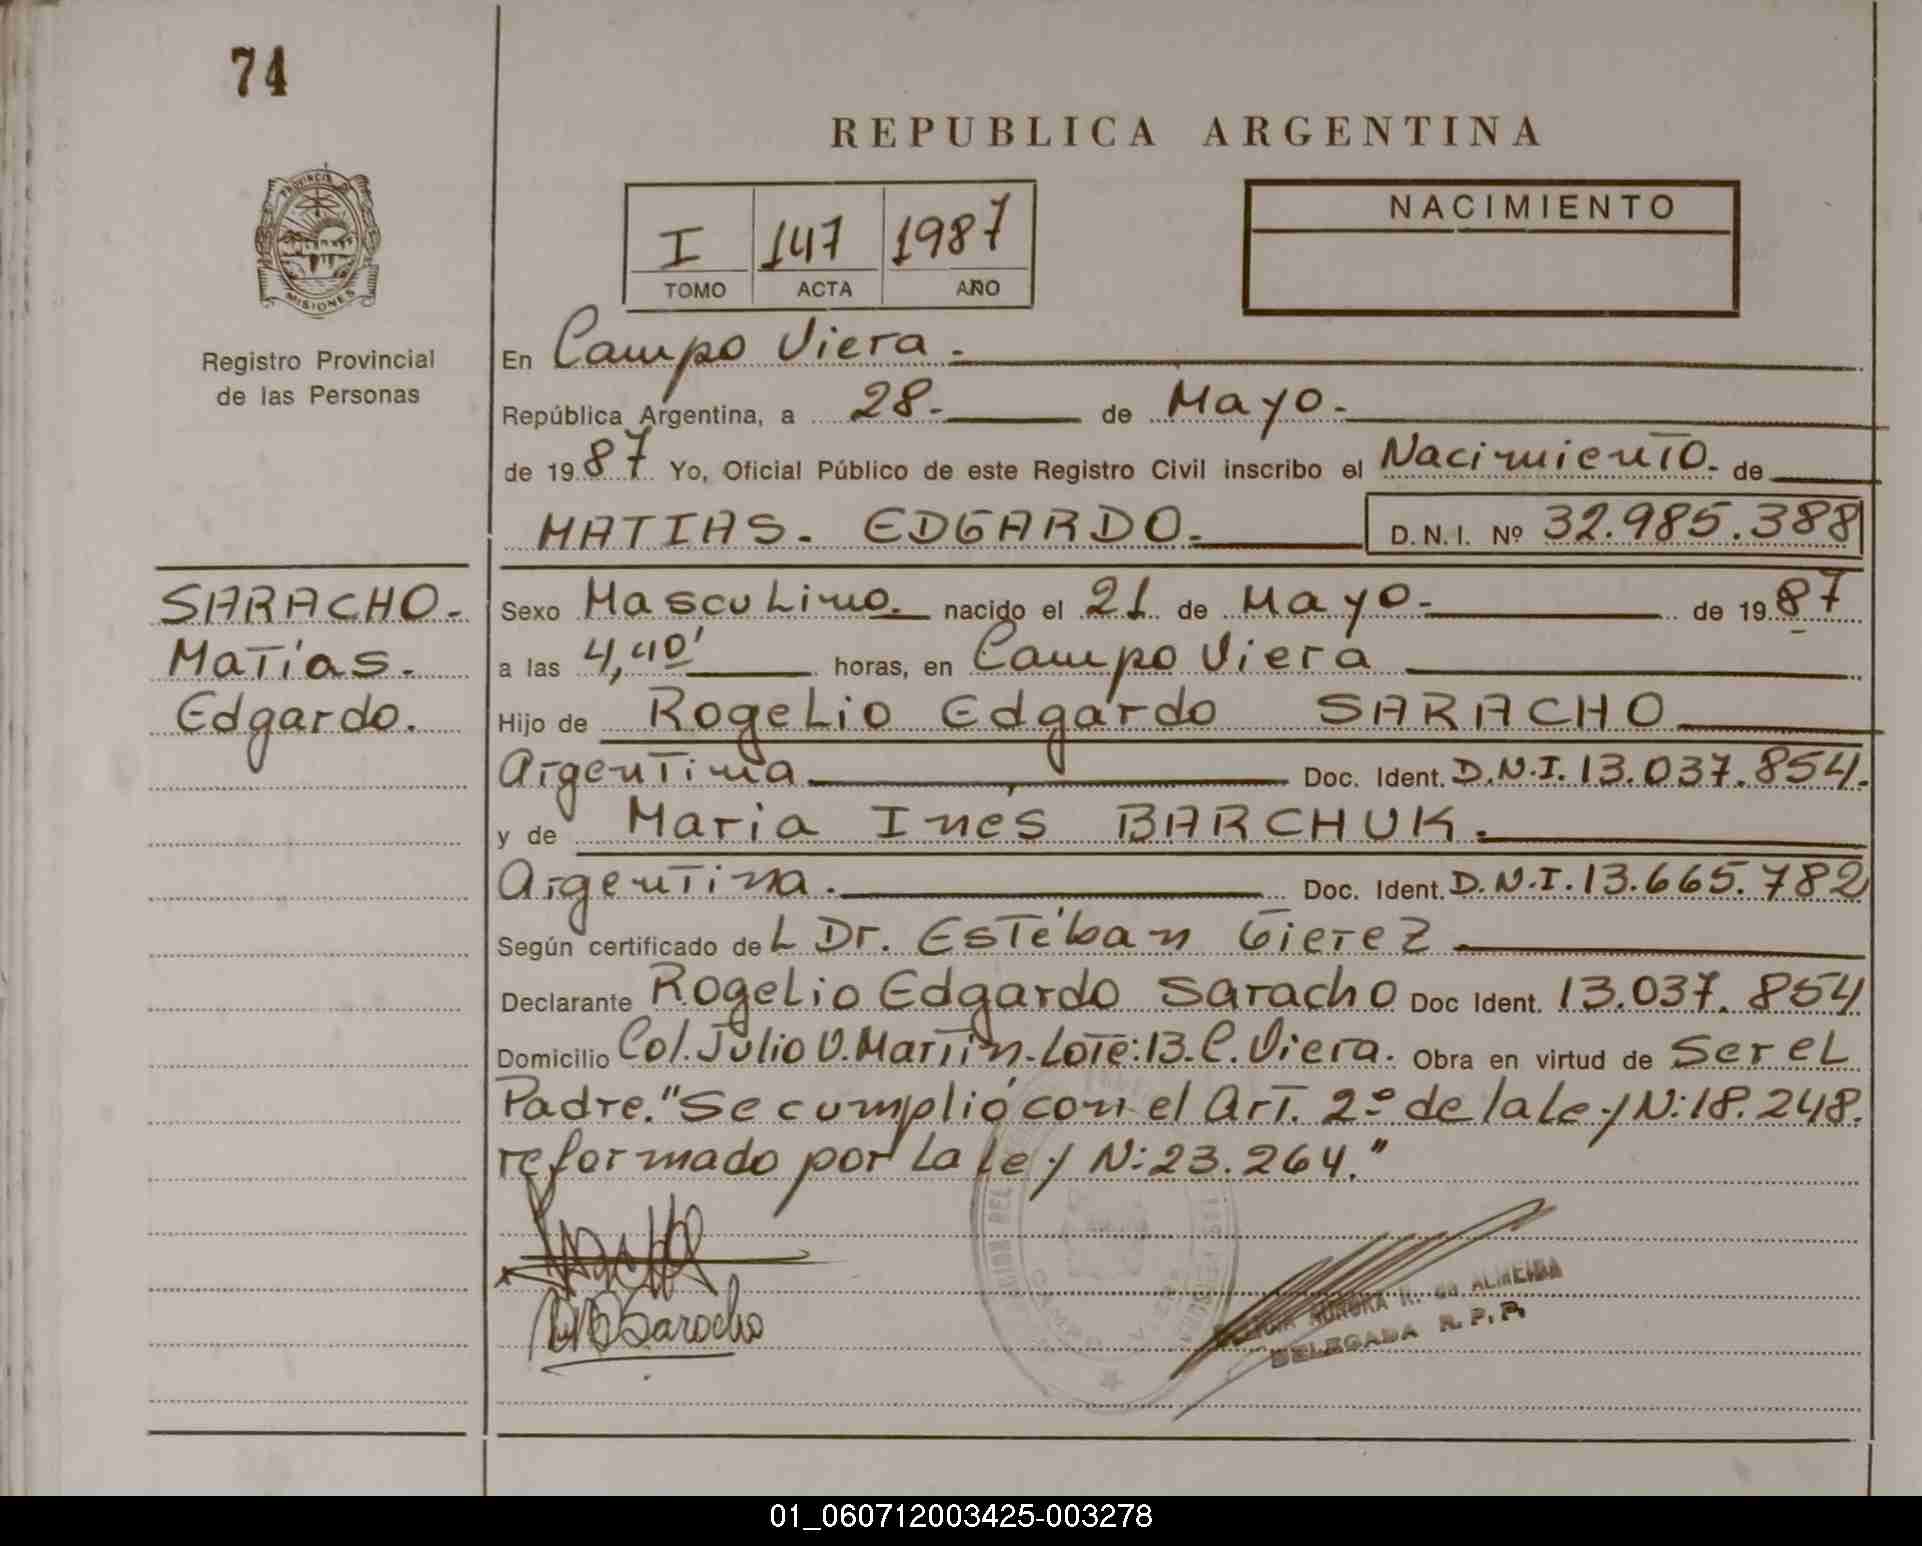 74
REPUBLICA ARGENTINA
PROVINCIA DE
MISIONES
Registro Provincial
de las Personas
I 147 1987
TOMO ACTA AÑO
NACIMIENTO
En Campo Viera.
República Argentina, a 28. de Mayo.
de 1987 Yo, Oficial Público de este Registro Civil inscribo el Nacimiento. de
MATIAS. EDGARDO. D.N.I. Nº 32.985.388
SARACHO.
Matías.
Edgardo.
Sexo Masculino. nacido el 21 de Mayo. de 1987
a las 4,40' horas, en Campo Viera
Hijo de Rogelio Edgardo SARACHO
Argentina Doc. Ident. D.N.I. 13.037.854.
y de Maria Inés BARCHUK.
Argentina. Doc. Ident. D.N.I. 13.665.782
Según certificado del Dr. Estéban Gierez
Declarante Rogelio Edgardo Saracho Doc Ident. 13.037.854
Domicilio Col. Julio U. Martín. Lote: 13. C. Viera. Obra en virtud de Ser el
Padre. "Se cumplió con el Art. 2º de la Ley N: 18.248.
reformado por la Ley N: 23.264."
Saracho
AURORA R. de ALMEIDA
DELEGADA R.P.P.
01_060712003425-003278